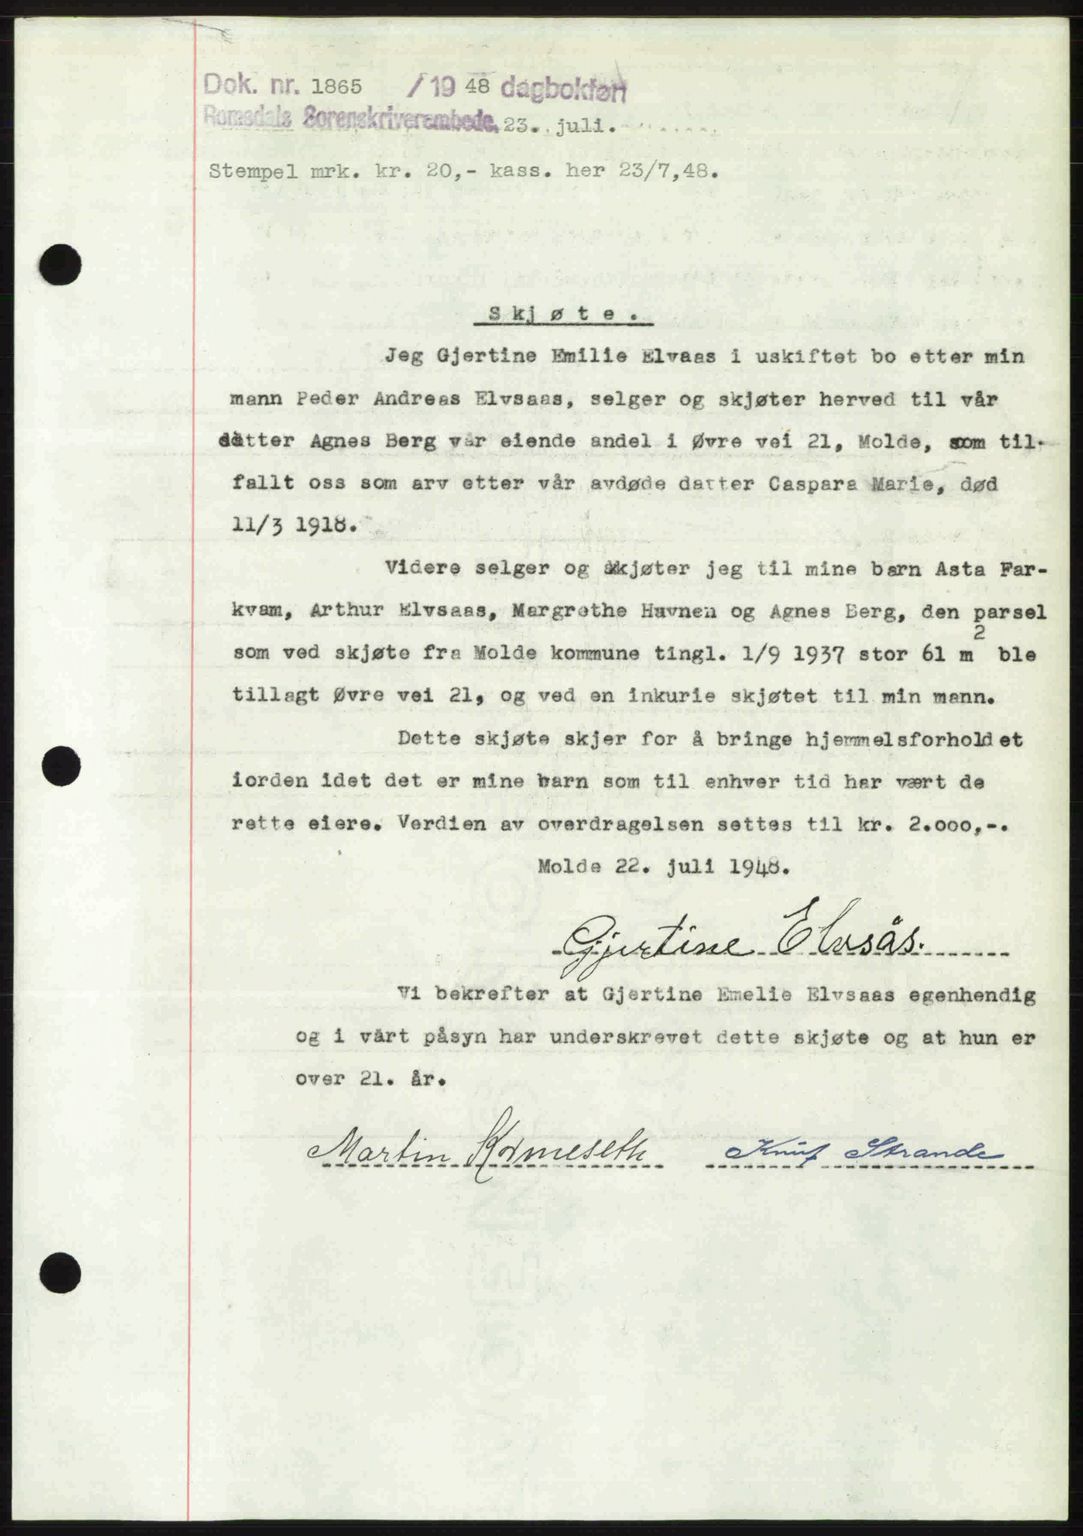 Dok. nr. 1865 / 19 48 dagbokført
Romsdals Sorenskriverembede, 23. juli.
Stempel mrk. kr. 20,- kass. her 23/7,48.
Skjøte.
Jeg Gjertine Emilie Elvaas i uskiftet bo etter min
mann Peder Andreas Elvsaas, selger og skjøter herved til vår
datter Agnes Berg vår eiende andel i Øvre vei 21, Molde, som til-
fallt oss som arv etter vår avdøde datter Caspara Marie, død
11/3 1918.
Videre selger og skjøter jeg til mine barn Asta Far-
kvam, Arthur Elvsaas, Margrethe Havnen og Agnes Berg, den parsel
som ved skjøte fra Molde kommune tingl. 1/9 1937 stor 61 m² ble
tillagt Øvre vei 21, og ved en inkurie skjøtet til min mann.
Dette skjøte skjer for å bringe hjemmelsforholdet
iorden idet det er mine barn som til enhver tid har vært de
rette eiere. Verdien av overdragelsen settes til kr. 2.000,-.
Molde 22. juli 1948.
Gjertine Elvsås.
Vi bekrefter at Gjertine Emelie Elvsaas egenhendig
og i vårt påsyn har underskrevet dette skjøte og at hun er
over 21. år.
Martin Kormeseth Knut Strande